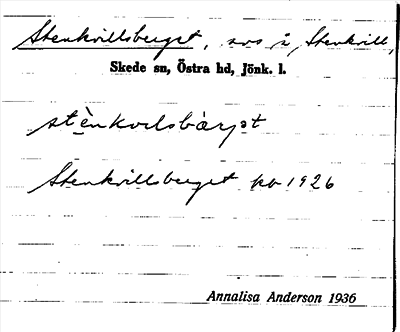 Stenkvillsberget, avs å Stenkvill,
Skede sn, Östra hd, Jönk. l.
stènkvelsbàrjet
Stenkvillsberget kb 1926
Annalisa Anderson 1936